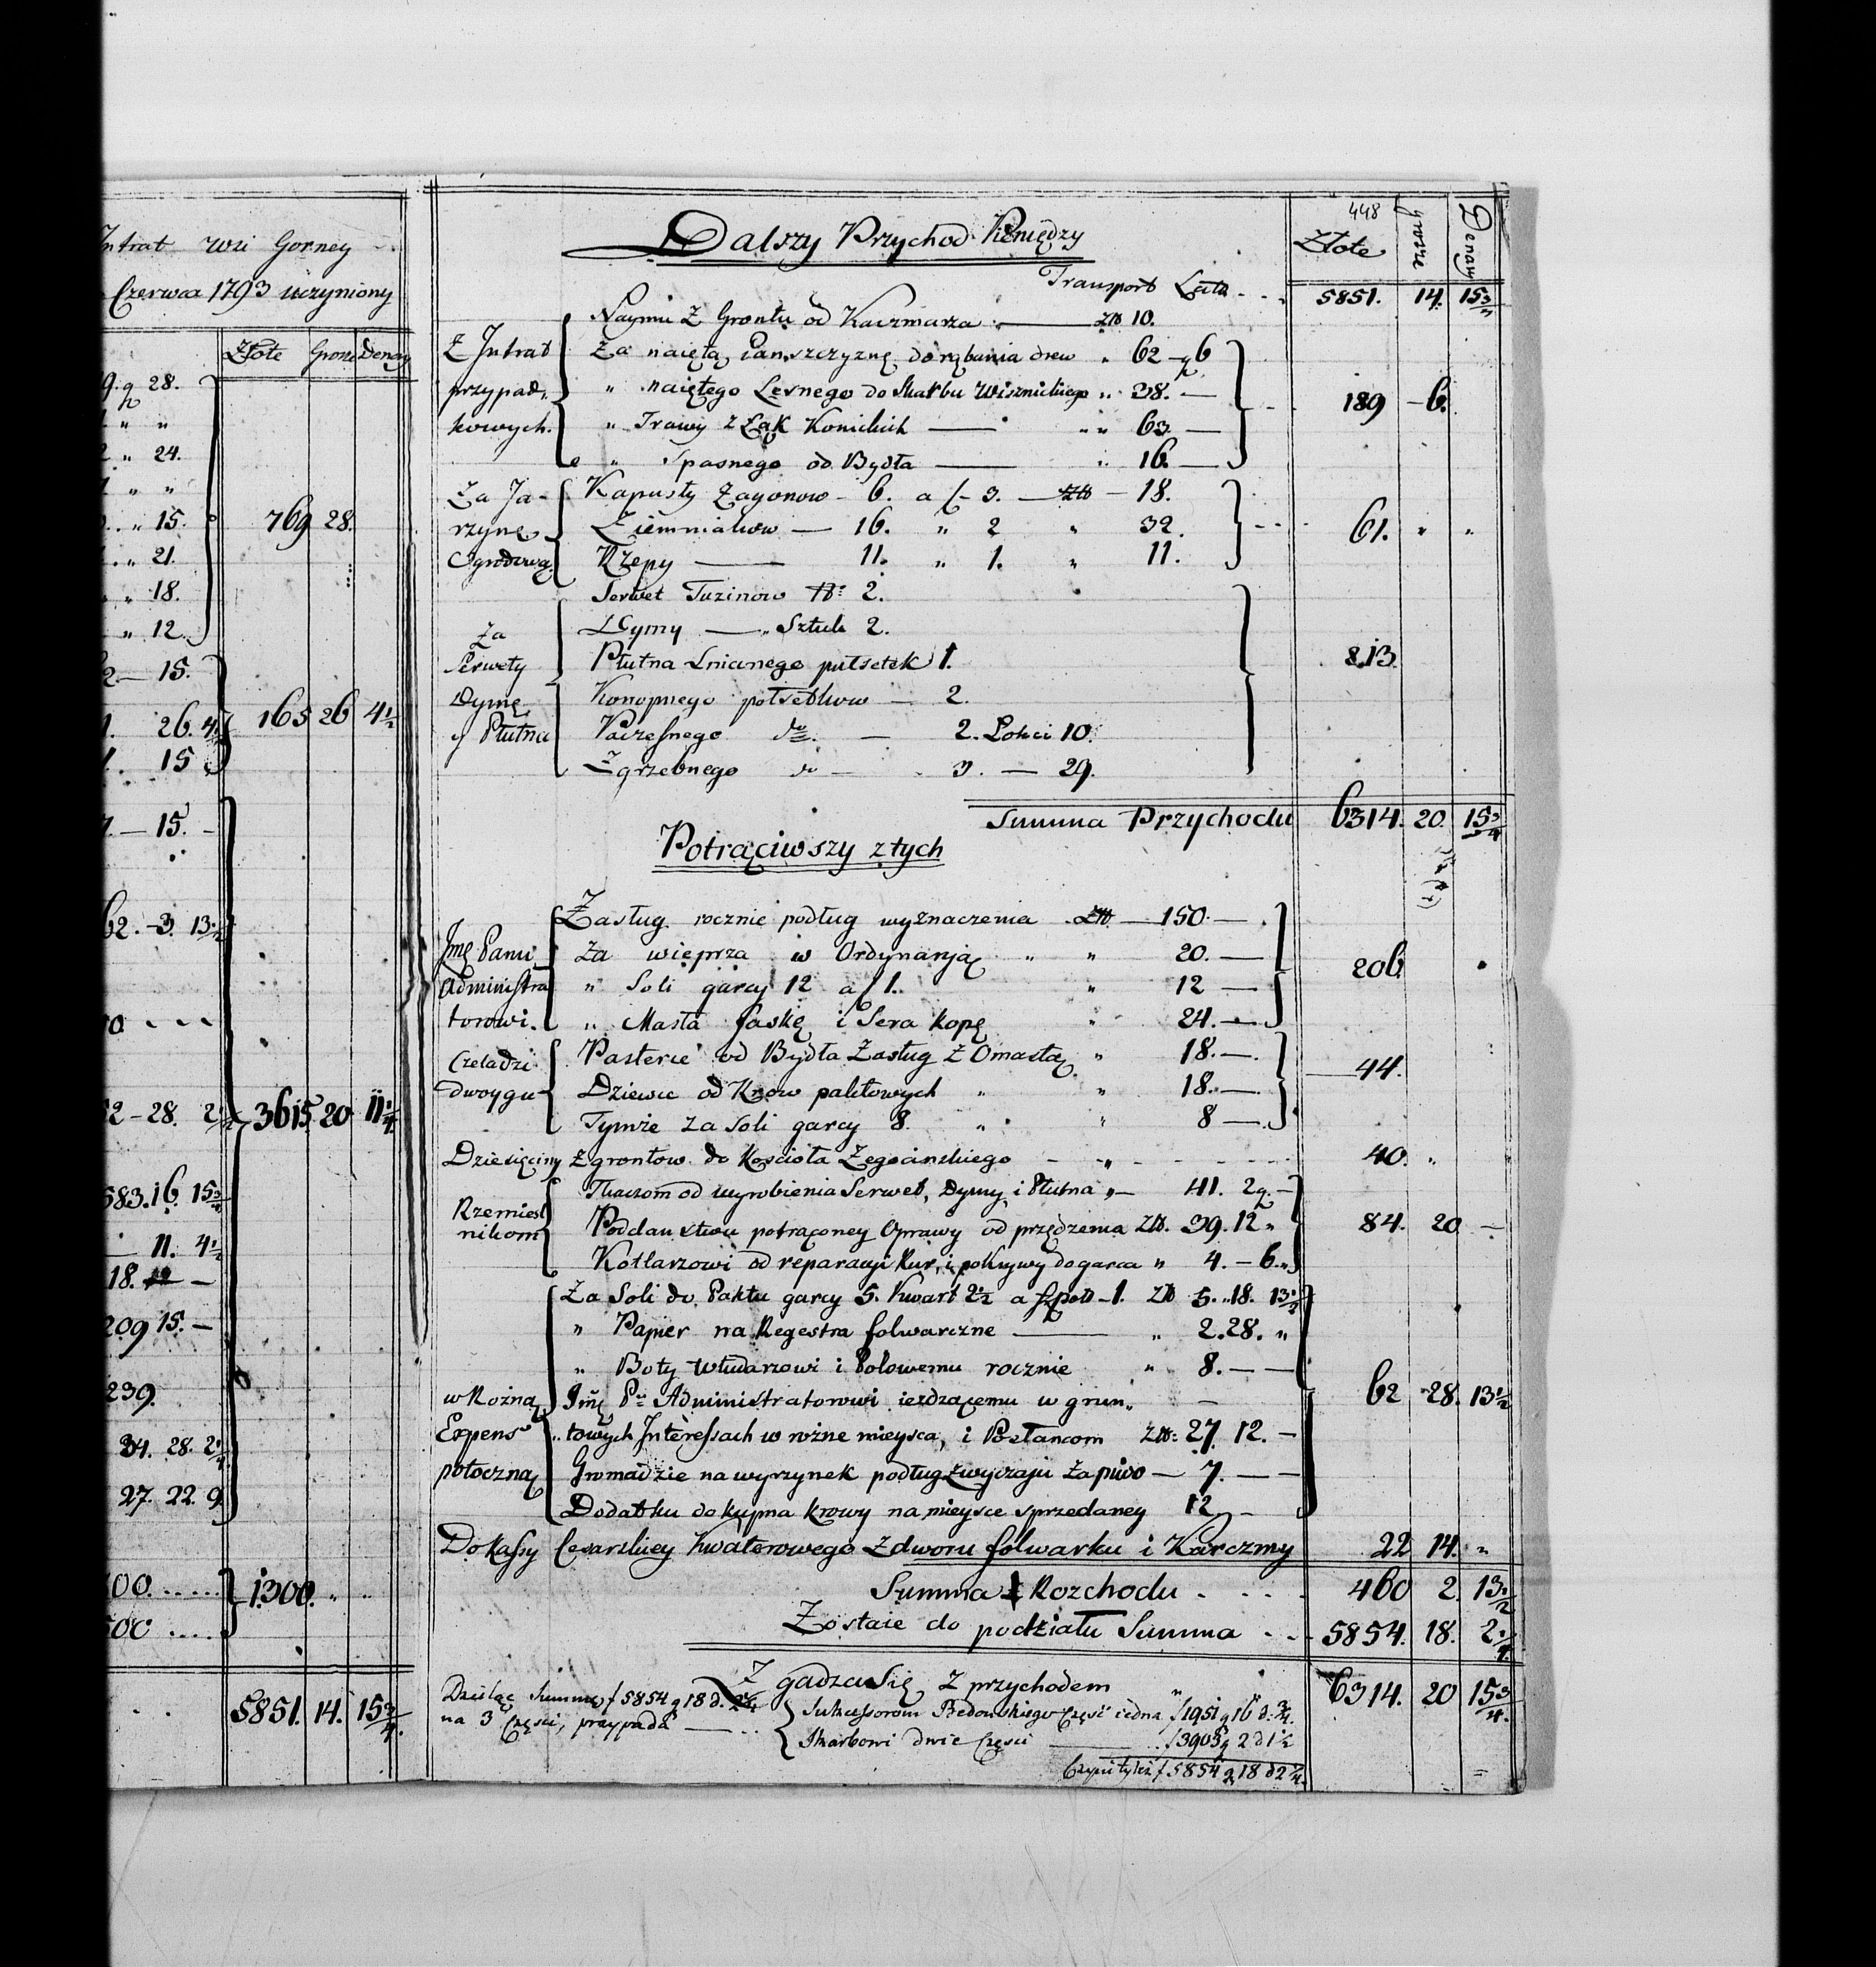 Intrat wsi Gorney
Czerwca 1793 uczyniony
Złote Grosze Denary
9. g 28.
" "
2 " 24.
" "
" 15. 769 28.
" 21.
" 18.
" 12.
2 — 15.
1. 26. 4½ 165 26 4½
1. 15
7. — 15.
62. — 3. 13½
0 . . .
62 — 28. 2¼ 3615 20 11¼
583. 16. 15¾
— 11. 4½
18. —
209 15. —
239.
34. 28. 2¼
27. 22. 9.
00. ..... 1300. " "
500 ....
5851. 14. 15¾
448
Dalszy Przychod Pieniędzy
Złote grosze Denary
Transport Lata . . . 5851. 14. 15¾
Z Intrat przypadkowych.
Naymu z Grontu od Kaczmarza — zł 10.
Za naiętą Panszczyznę do rąbania drew " 62 — g 6
" naiętego Lesnego do Skarbu Wisznickiego " 38. —
" Trawy z Łąk Konickich — " 63 —
" Spasnego od Bydła — " 16. —
189 — 6.
Za Jarzynę Ogrodową
Kapusty Zagonow — 6. a f 3. — zł — 18.
Ziemniakow — 16. " 2 " 32.
Rzepy — 11. " 1. " 11.
61. " "
Za Serwety Dymę y Płutna
Serwet Tuzinow N: 2.
Dymy — " Sztuk 2.
Płutna Lnianego pułsetek 1.
Konopnego połsetkow — 2.
Paczesnego do. — 2. Łokci 10.
Zgrzebnego do — 3. — 29.
213
Summa Przychodu 6314. 20. 15¾
Potrąciwszy z tych
Jmę Panu Administratorowi.
Zasług rocznie podług wyznaczenia zł — 150. —
Za wieprza w Ordynaryą " " 20. —
" Soli garcy 12 a f 1. " 12 —
" Masła faskę i Sera kopę " 24. —
206
Czeladzi dwoygu
Pasterce od Bydła Zasług z Omastą " 18. —
Dziewce od Krow paktowych " " 18. —
Tymże za Soli garcy 8. " " 8 —
44.
Dziesięciny z grontow do Kościoła Żegocinskiego — " — 40. " "
Rzemieslnikom
Tkaczom od wyrobienia Serwet, Dymy, i Płutna " — 41. 2 g. —
Poddanstwu potrąconey Oprawy od przędzenia Zł. 39. 12 "
Kotlarzowi od reparacyi Rur, i pokrywy do garca " 4. — 6. "
84. 20 —
w Rożną Expens potoczną
Za Soli do Paktu garcy 5. Kwart 2½ a f 1. Zł 5. " 18. 13½
" Papier na Regestra folwarczne — " 2. 28. "
" Boty Włudarzowi i Polowemu rocznie " 8. — —
Jmę Pu Administratorowi iezdzącemu w grun —
towych Interessach w rożne mieysca, i Posłancom Zł: 27. 12. —
Gromadzie na wyrzynek podług zwyczaju za piwo — 7. — —
Dodatku do kupna krowy na mieysce sprzedaney 12 —
62 28. 13½
Do Kassy Cesarskiey Kwaterowego z dworu folwarku i Karczmy 22 14. "
Summa Rozchodu . . . . 460 2. 13½
Zostaie do podziału Summa . . . 5854. 18. 2¼
Zgadza się z przychodem " 6314. 20 15¾
Dzieląc Summę f 5854 g 18 d. 2¼
na 3 Części, przypada — . . .
Sukcessorom Bedonskiego Część iedna f 1951 g 16 d. ¾.
Skarbowi dwie Części — f 3903 g 2 d 1½
Czyni tyleż f 5854 g 18 d 2¼.